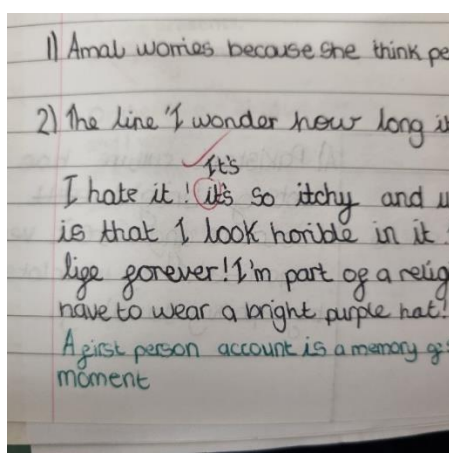 1) Amal worries because she think pe
2) The line 'I wonder how long i
It's
I hate it! it's so itchy and u
is that I look horible in it
life forever! I'm part of a relig
have to wear a bright purple hat!
A first person account is a memory
moment